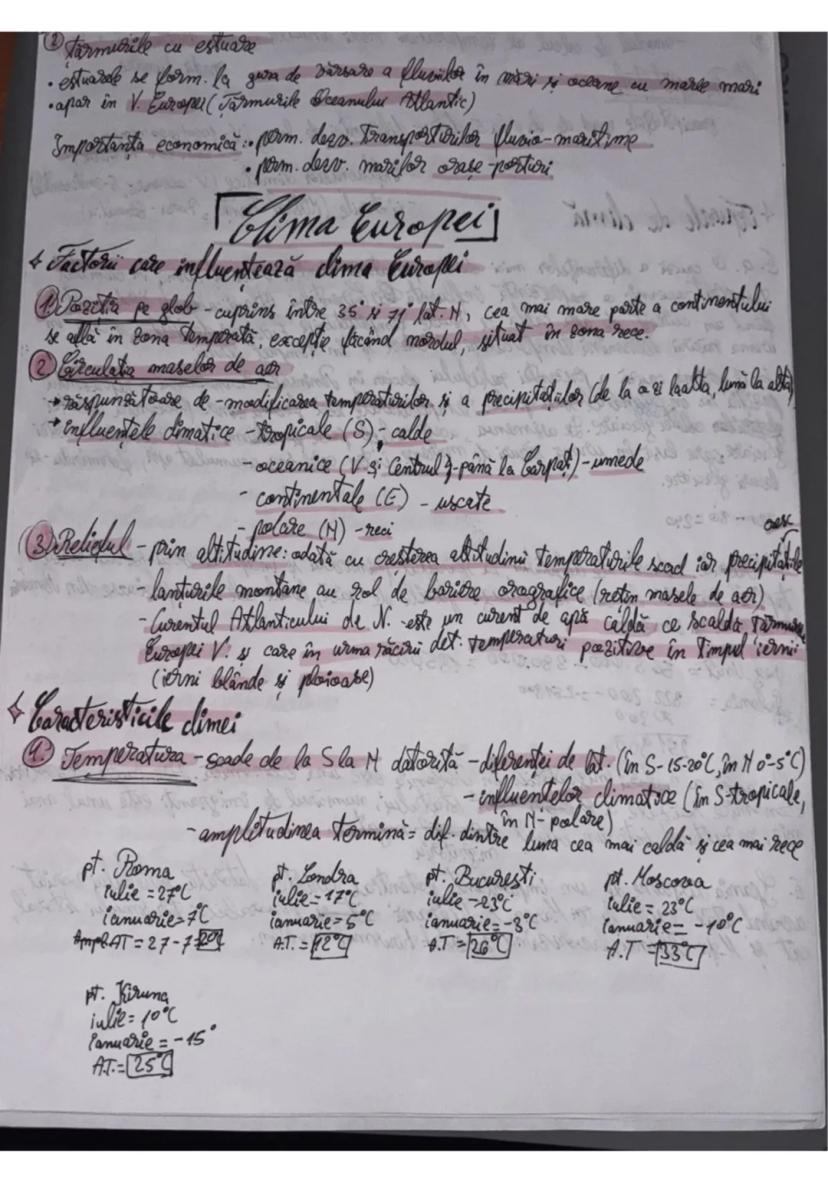 ② Țărmurile cu estuare
• estuarele se form. la gura de vărsare a fluviilor în mări și oceane cu maree mari
• apar în V. Europei (Țărmurile Oceanului Atlantic)
Importanța economică: • perm. dezv. Transporturilor fluvio-maritime
• perm. dezv. marilor orașe-porturi
Clima Europei
Factorii care influențează clima Europei
① Poziția pe glob - cuprins între 35° și 71° lat. N, cea mai mare parte a continentului
se află în zona temperată, excepție făcând nordul, situat în zona rece.
② Circulația maselor de aer
→ răspunzătoare de - modificarea temperaturilor și a precipitațiilor (de la o zi la alta, lună la alta)
→ influențele climatice - tropicale (S) - calde
- oceanice (V și Centrul - până la Carpați) - umede
- continentale (E) - uscate
- polare (N) - reci
③ Relieful - prin altitudine: odată cu creșterea altitudinii temperaturile scad iar precipitațiile cresc
- lanțurile montane au rol de bariere orografice (rețin masele de aer)
- Curentul Atlanticului de N. este un curent de apă caldă ce scaldă Țărmurile
Europei V. și care în urma răcirii det. temperaturi pozitive în Timpul iernii
(ierni blânde și ploioase)
Caracteristicile climei
1. Temperatura - scade de la S la N datorită - diferenței de lat. (în S-15-20°C, în N 0°-5°C)
- influențelor climatice (în S-tropicale,
în N-polare)
- amplitudinea termină = dif. dintre luna cea mai caldă și cea mai rece
pt. Roma pt. Londra pt. București pt. Moscova
iulie = 27°C iulie = 17°C iulie = 23°C iulie = 23°C
ianuarie = 7°C ianuarie = 5°C ianuarie = -3°C ianuarie = -10°C
Ampl. AT = 27 - 7 = 20° A.T. = 12°C A.T = 26°C A.T = 33°C
pt. Kiruna
iulie = 10°C
ianuarie = -15°
A.T. = 25°C